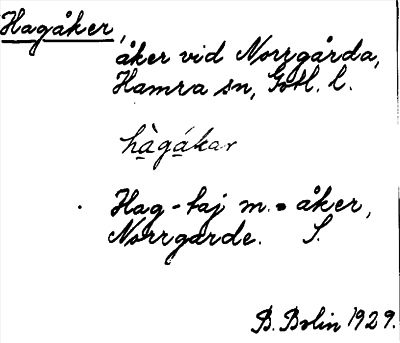 Hagåker,
åker vid Norrgårda,
Hamra sn, Gotl. l.
hàgákar
Hag-taj m. = åker,
Norrgarde. S.
B. Bolin 1929.